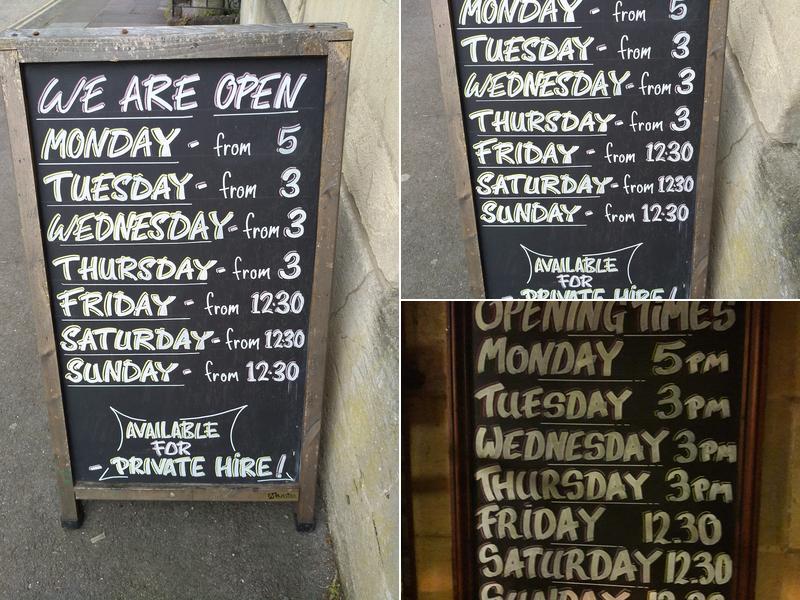 WE ARE OPEN
MONDAY - from 5
TUESDAY - from 3
WEDNESDAY - from 3
THURSDAY - from 3
FRIDAY - from 12:30
SATURDAY - from 12:30
SUNDAY - from 12.30
AVAILABLE
FOR
- PRIVATE HiRE!
MONDAY from 5
TUESDAY - from 3
WEDNESDAY - from 3
THURSDAY - from 3
FRIDAY - from 12:30
SATURDAY - from 12:30
SUNDAY - from 12.30
AVAILABLE
FOR
- PRIVATE HiRE!
OPENING TIMES
MONDAY 5PM
TUESDAY 3PM
WEDNESDAY 3PM
THURSDAY 3PM
FRIDAY 12.30
SATURDAY 12.30
SUNDAY 12.30